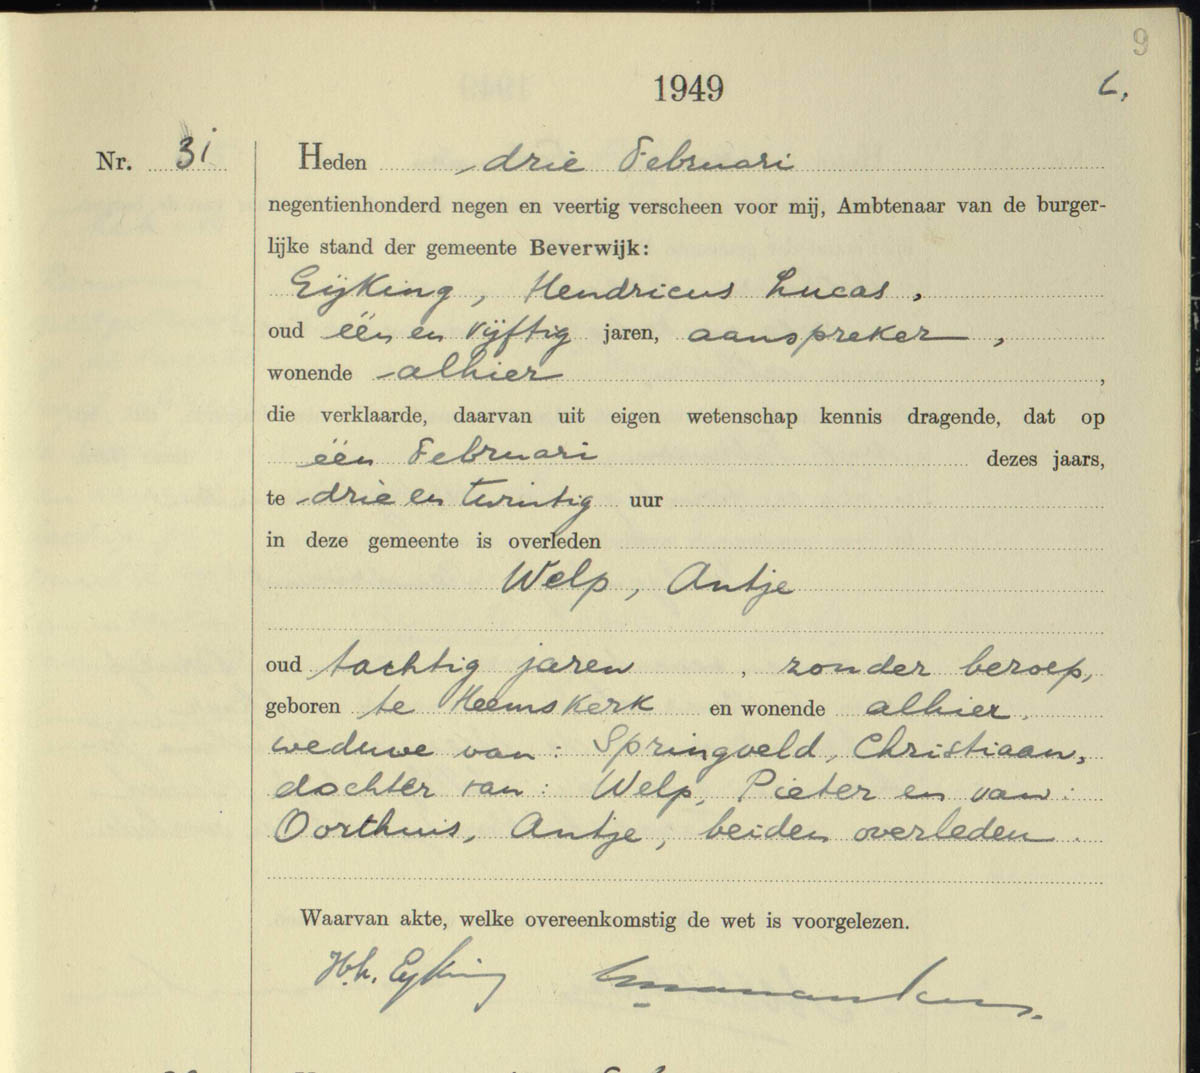 9
1949
Nr. 31
Heden drie Februari
negentienhonderd negen en veertig verscheen voor mij, Ambtenaar van de burger-
lijke stand der gemeente Beverwijk:
Eijking, Hendricus Lucas,
oud één en vijftig jaren, aanspreker,
wonende alhier,
die verklaarde, daarvan uit eigen wetenschap kennis dragende, dat op
één Februari dezes jaars,
te drie en twintig uur
in deze gemeente is overleden
Welp, Antje
oud tachtig jaren, zonder beroep,
geboren te Heemskerk en wonende alhier.
weduwe van: Springveld, Christiaan,
dochter van: Welp, Pieter en van:
Oorthuis, Antje, beiden overleden.
Waarvan akte, welke overeenkomstig de wet is voorgelezen.
H.L. Eyking